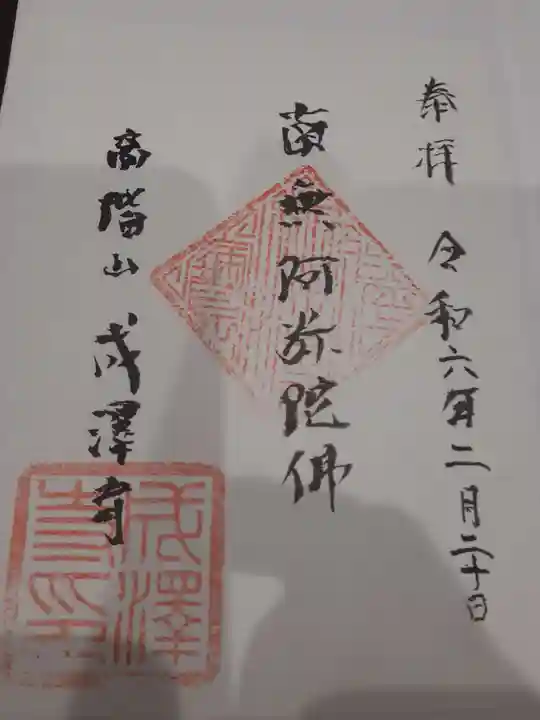 奉拝 令和六年二月二十日
南無阿弥陀佛
高階山 成澤寺
成澤寺印